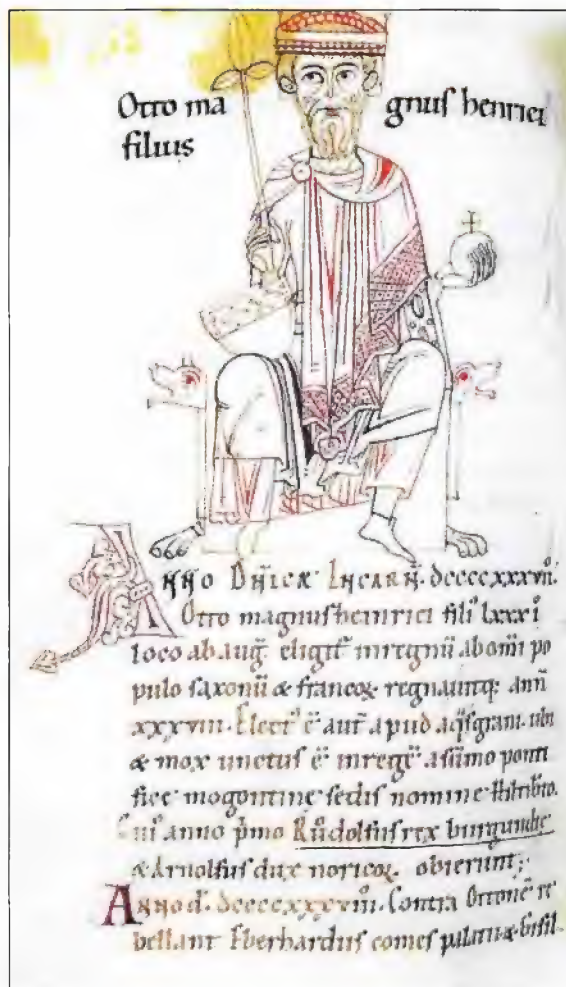 Otto ma gnus henrici
filius
ANNO DN̄ICE INCARN̄. dccccxxxvii.
Otto magnus heinrici fili᾽ lxxxi᾽
loco ab aug᷑. eligit᷑ in regnū ab om̄i po
pulo saxonū & francoꝝ regnauitq; ann̄
xxxviii. Elect᷑ ē aut̄ apud aq̄sgrani. ubi
& mox unctus ē in regē a sūmo ponti
fice mogontine sedis nomine
anno p̄mo Růdolfus rex burgundie
& Arnolfus dux noricoꝝ. obierunt;
Anno d. dccccxxxviii. Contra Ottonē re
bellant Eberhardus comes palatii &